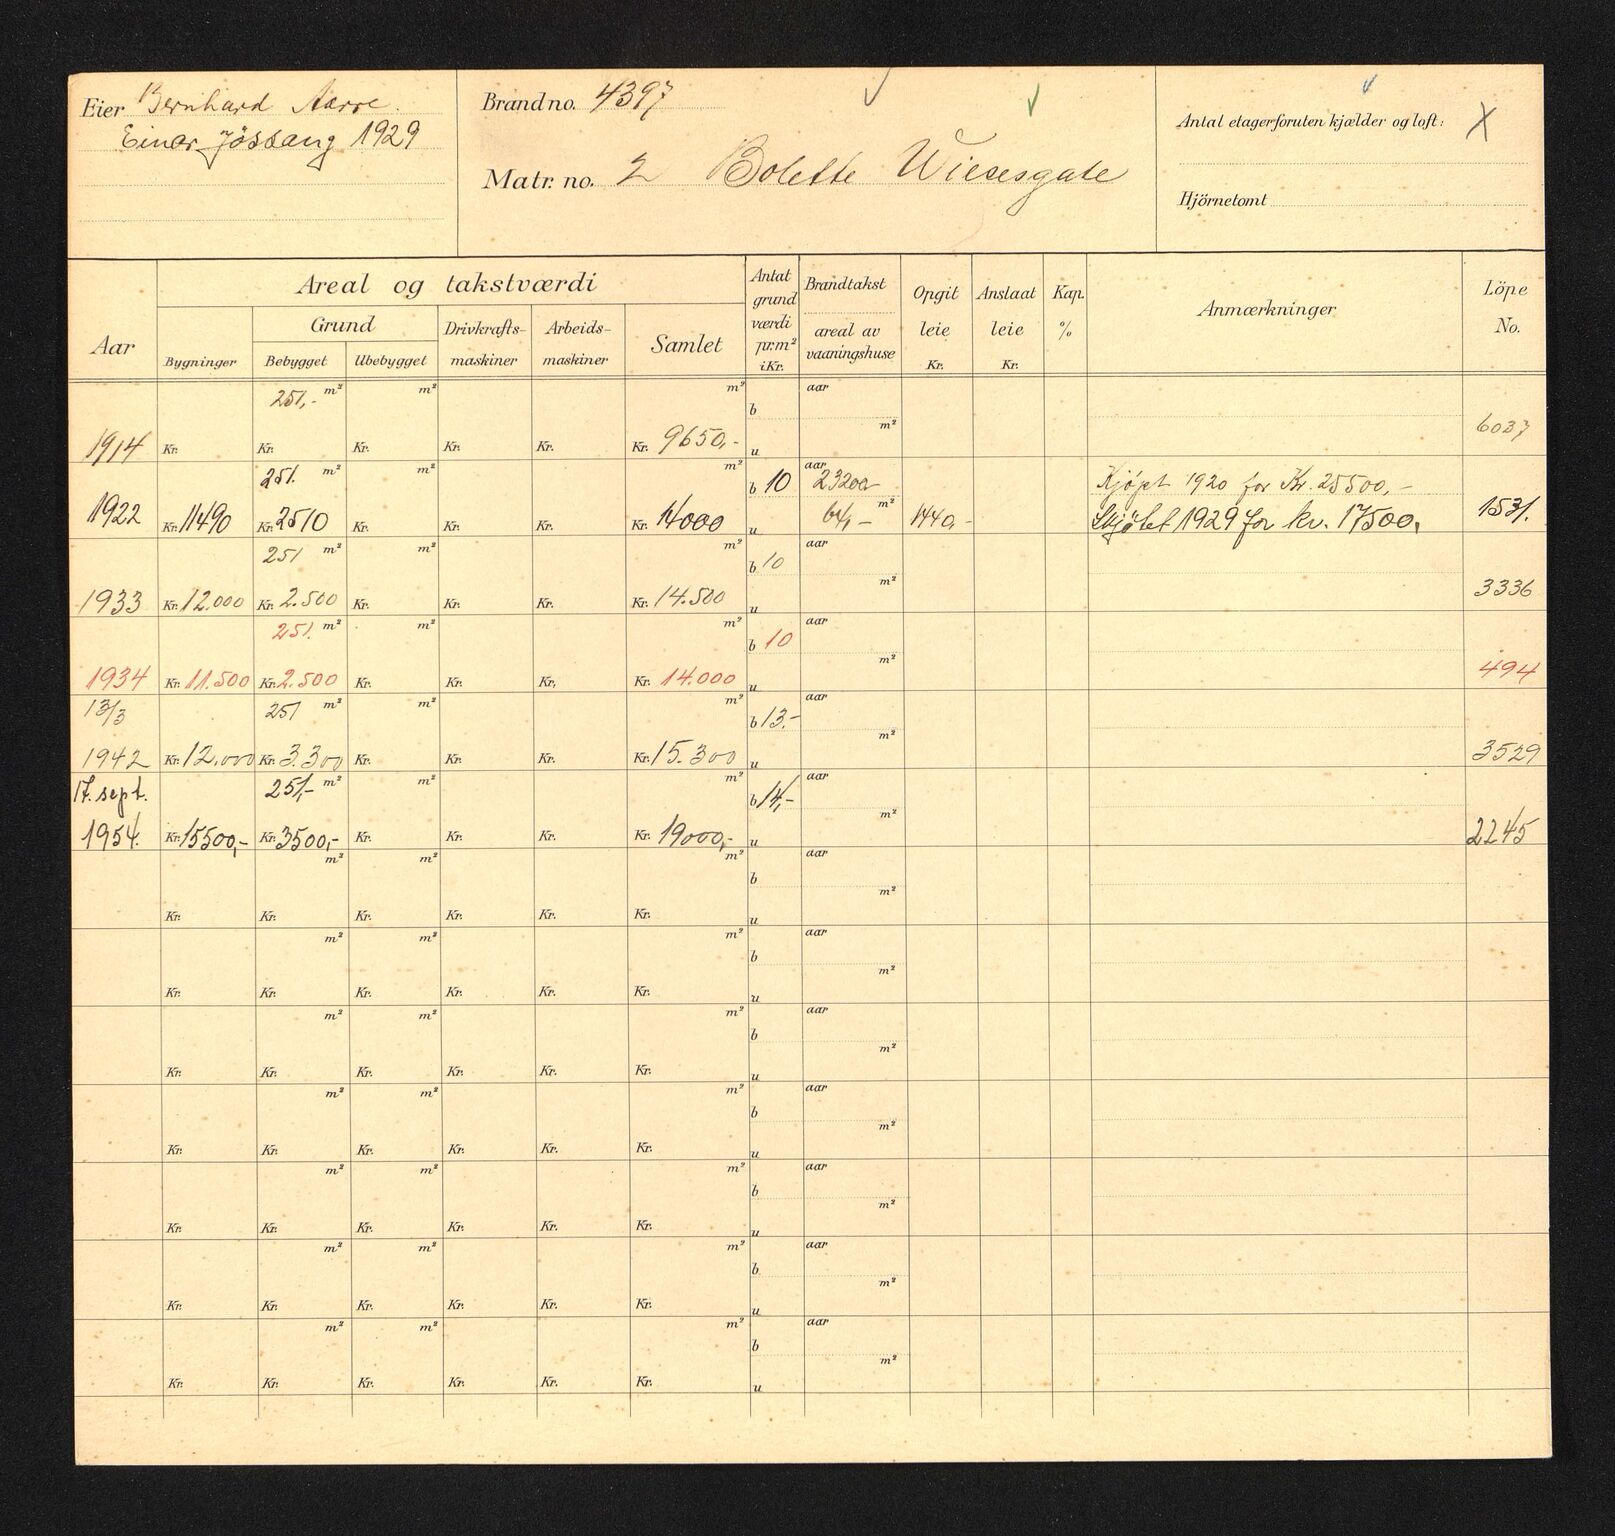 Eier Bernhard Aarre.
Einar Jössang 1929
Brandno. 4397
Matr. no. 2 Bolette Wiesesgate
Antal etager foruten kjælder og loft:
Hjörnetomt
Aar
Areal og takstværdi
Bygninger
Grund
Bebygget
Ubebygget
Drivkrafts-
maskiner
Arbeids-
maskiner
Samlet
Antat
grund
værdi
pr.m²
i Kr.
Brandtakst
areal av
vaaningshuse
Opgit
leie
Kr.
Anslaat
leie
Kr.
Kap.
%
Anmærkninger
Löpe
No.
251,- m² m² m² b aar
m²
1914 Kr. Kr. Kr. Kr. Kr. Kr. 9650,- u 6037
251. m² m² m² b 10 aar 23200 Kjøpt 1920 for Kr. 25500,-
1922 Kr. 11490 Kr. 2510 Kr. Kr. Kr. Kr. 14000 u 64,- m² 1440,- Skjøtet 1929 for kr. 17500, 1531.
251 m² m² m² b 10 aar
m²
1933 Kr. 12.000 Kr. 2.500 Kr. Kr. Kr. Kr. 14.500 u 3336
251. m² m² m² b 10 aar
m²
1934 Kr. 11.500 Kr. 2.500 Kr. Kr. Kr. Kr. 14.000 u 494
13/3 251 m² m² m² b 13.- aar
m²
1942 Kr. 12.000 Kr. 3.300 Kr. Kr. Kr. Kr. 15.300 u 3529
17. sept. 251,- m² m² m² b 14,- aar
m²
1954. Kr. 15500,- Kr. 3500,- Kr. Kr. Kr. Kr. 19000,- u 2245
m² m² m² b aar
m²
Kr. Kr. Kr. Kr. Kr. Kr. u
m² m² m² b aar
m²
Kr. Kr. Kr. Kr. Kr. Kr. u
m² m² m² b aar
m²
Kr. Kr. Kr. Kr. Kr. Kr. u
m² m² m² b aar
m²
Kr. Kr. Kr. Kr. Kr. Kr. u
m² m² m² b aar
m²
Kr. Kr. Kr. Kr. Kr. Kr. u
m² m² m² b aar
m²
Kr. Kr. Kr. Kr. Kr. Kr. u
m² m² m² b aar
m²
Kr. Kr. Kr. Kr. Kr. Kr. u